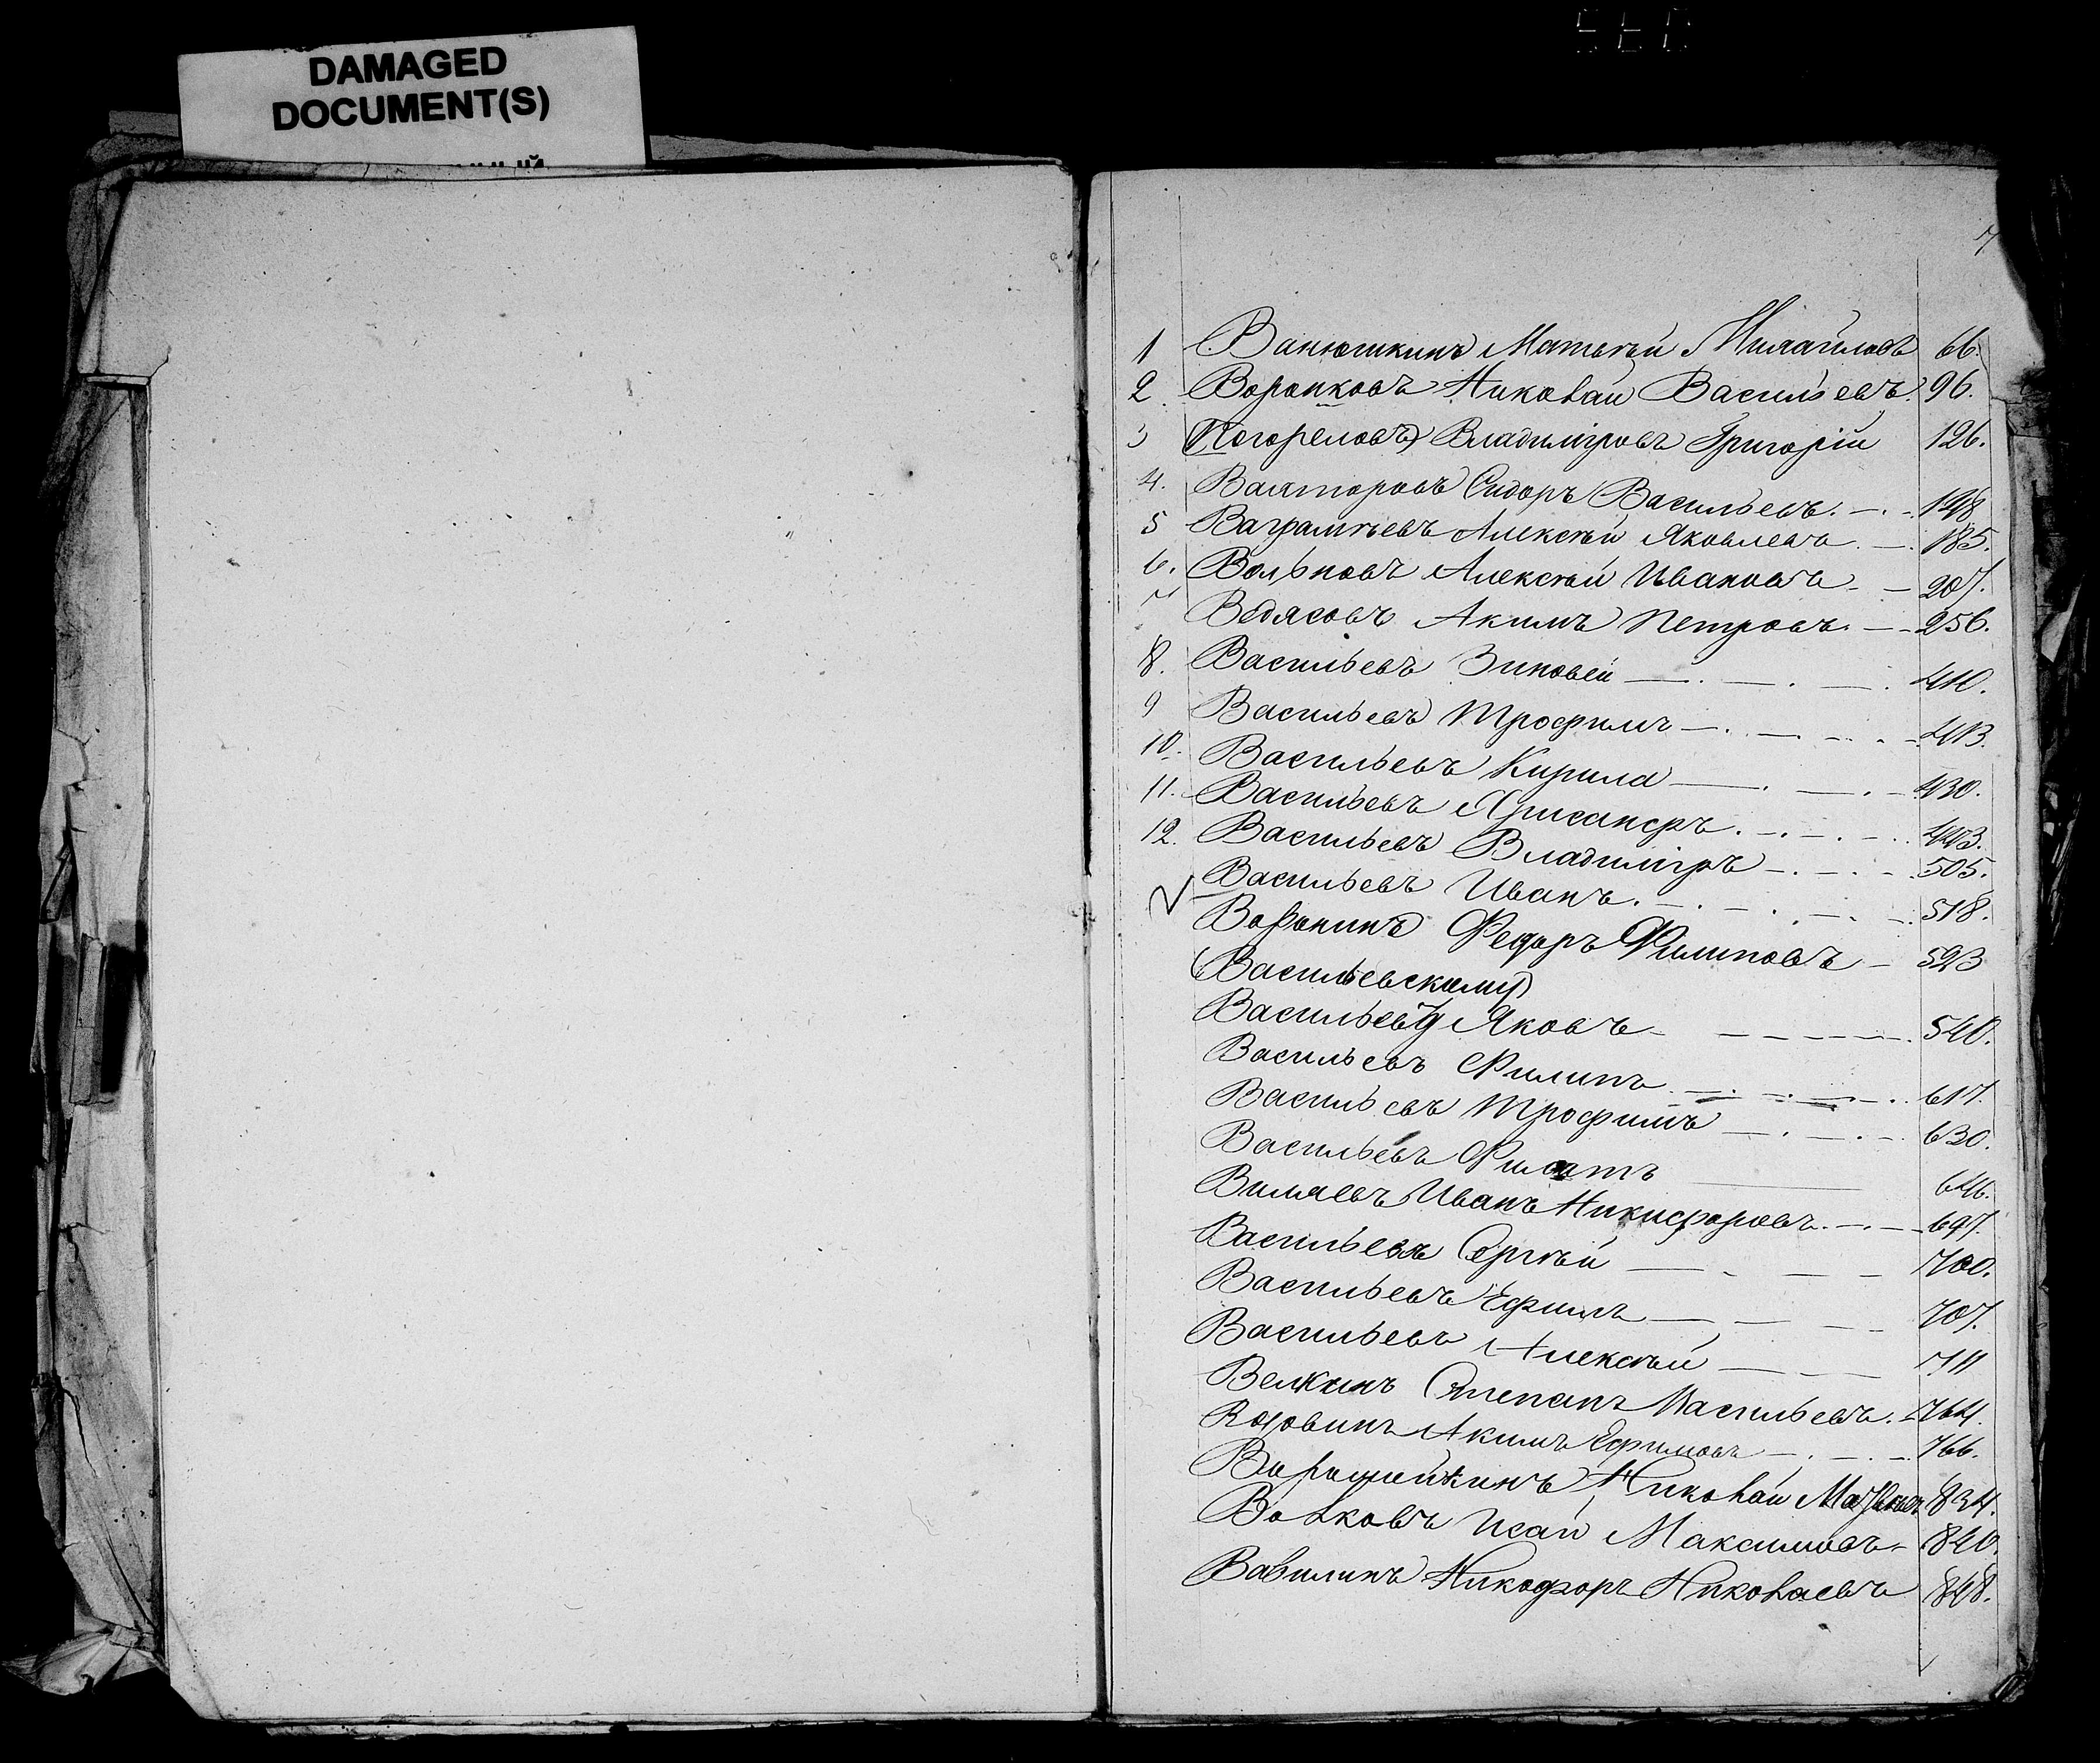 DAMAGED
DOCUMENT(S)
7
1 Ванюшкинъ Матвѣй Михайловъ 66.
2. Воронковъ Николай Васильевъ. 96.
3 (Погореловъ) Владиміровъ Григорій 126.
4. Сидоръ Васильевъ. 148
5 Алексѣй Яковлевъ. 185.
6. Вольновъ Алексѣй Ивановъ 207.
7 Ведясовъ Акимъ Петровъ. 256.
8. Васильевъ Зиновей 410.
9 Васильевъ Трофимъ 413.
10. Васильевъ Кирила 430.
11. Васильевъ Хрисанфъ. 443.
12. Васильевъ Владиміръ 505.
Васильевъ Иванъ. 518.
Воронинъ Федоръ Филиповъ 523
(Васильевскому)
Васильеву Яковъ 540.
Васильевъ Филипъ 617.
Васильевъ Трофимъ 630.
Васильевъ Филатъ 646.
Виляевъ Иванъ Никифоровъ. 697.
Васильевъ Сергѣй 700.
Васильевъ Ефимъ 707.
Васильевъ Алексѣй 711
Велкинъ Степанъ Васильевъ. 764.
Акимъ Ефимовъ 766.
Николай 834.
Волковъ Исай Максимовъ 840.
Вавилинъ Никофоръ Николаевъ 848.